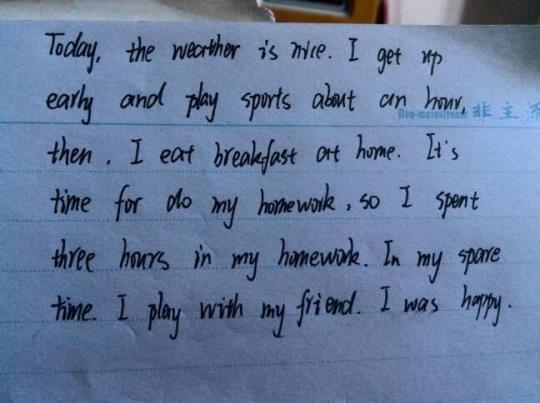 Today, the weather is nice. I get up
early and play sports about an hour,
Non-mainstream 非主流
then, I eat breakfast at home. It's
time for do my homework, so I spent
three hours in my homework. In my spare
time. I play with my friend. I was happy.